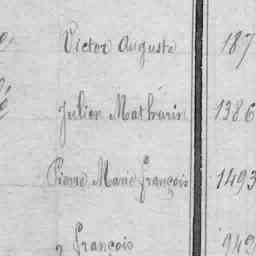 Victor Auguste 187
Julien Mathurin 1386
Pierre Marie François 1493
François 949